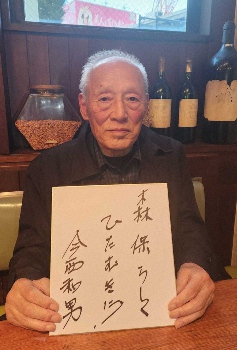 森保らしく
ひたむきに!
今西和男